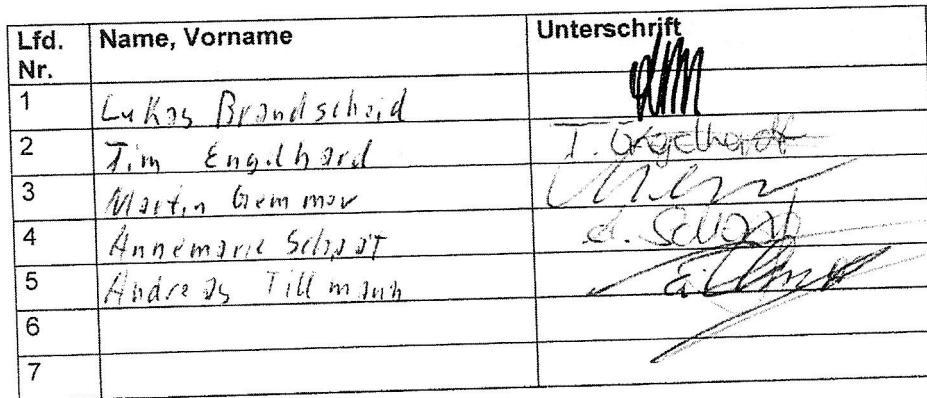 Lfd. Nr. Name, Vorname Unterschrift
1 Lukas Brandscheid
2 Tim Engelhard T. Engelhardt
3 Martin Gemmar
4 Annemarie Schaat A. Schaat
5 Andreas Tillmann
6
7